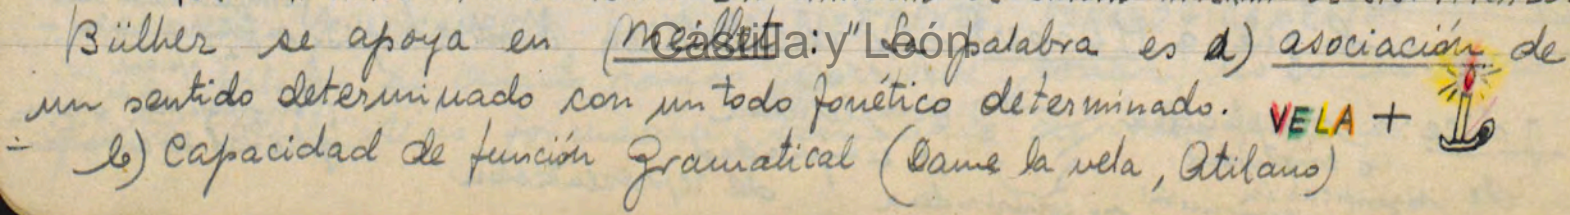 Bülher se apoya en (Meillet: "La palabra es a) asociación de
un sentido determinado con un todo fonético determinado. VELA +
b) Capacidad de función gramatical (Dame la vela, Atilano)
Castilla y León